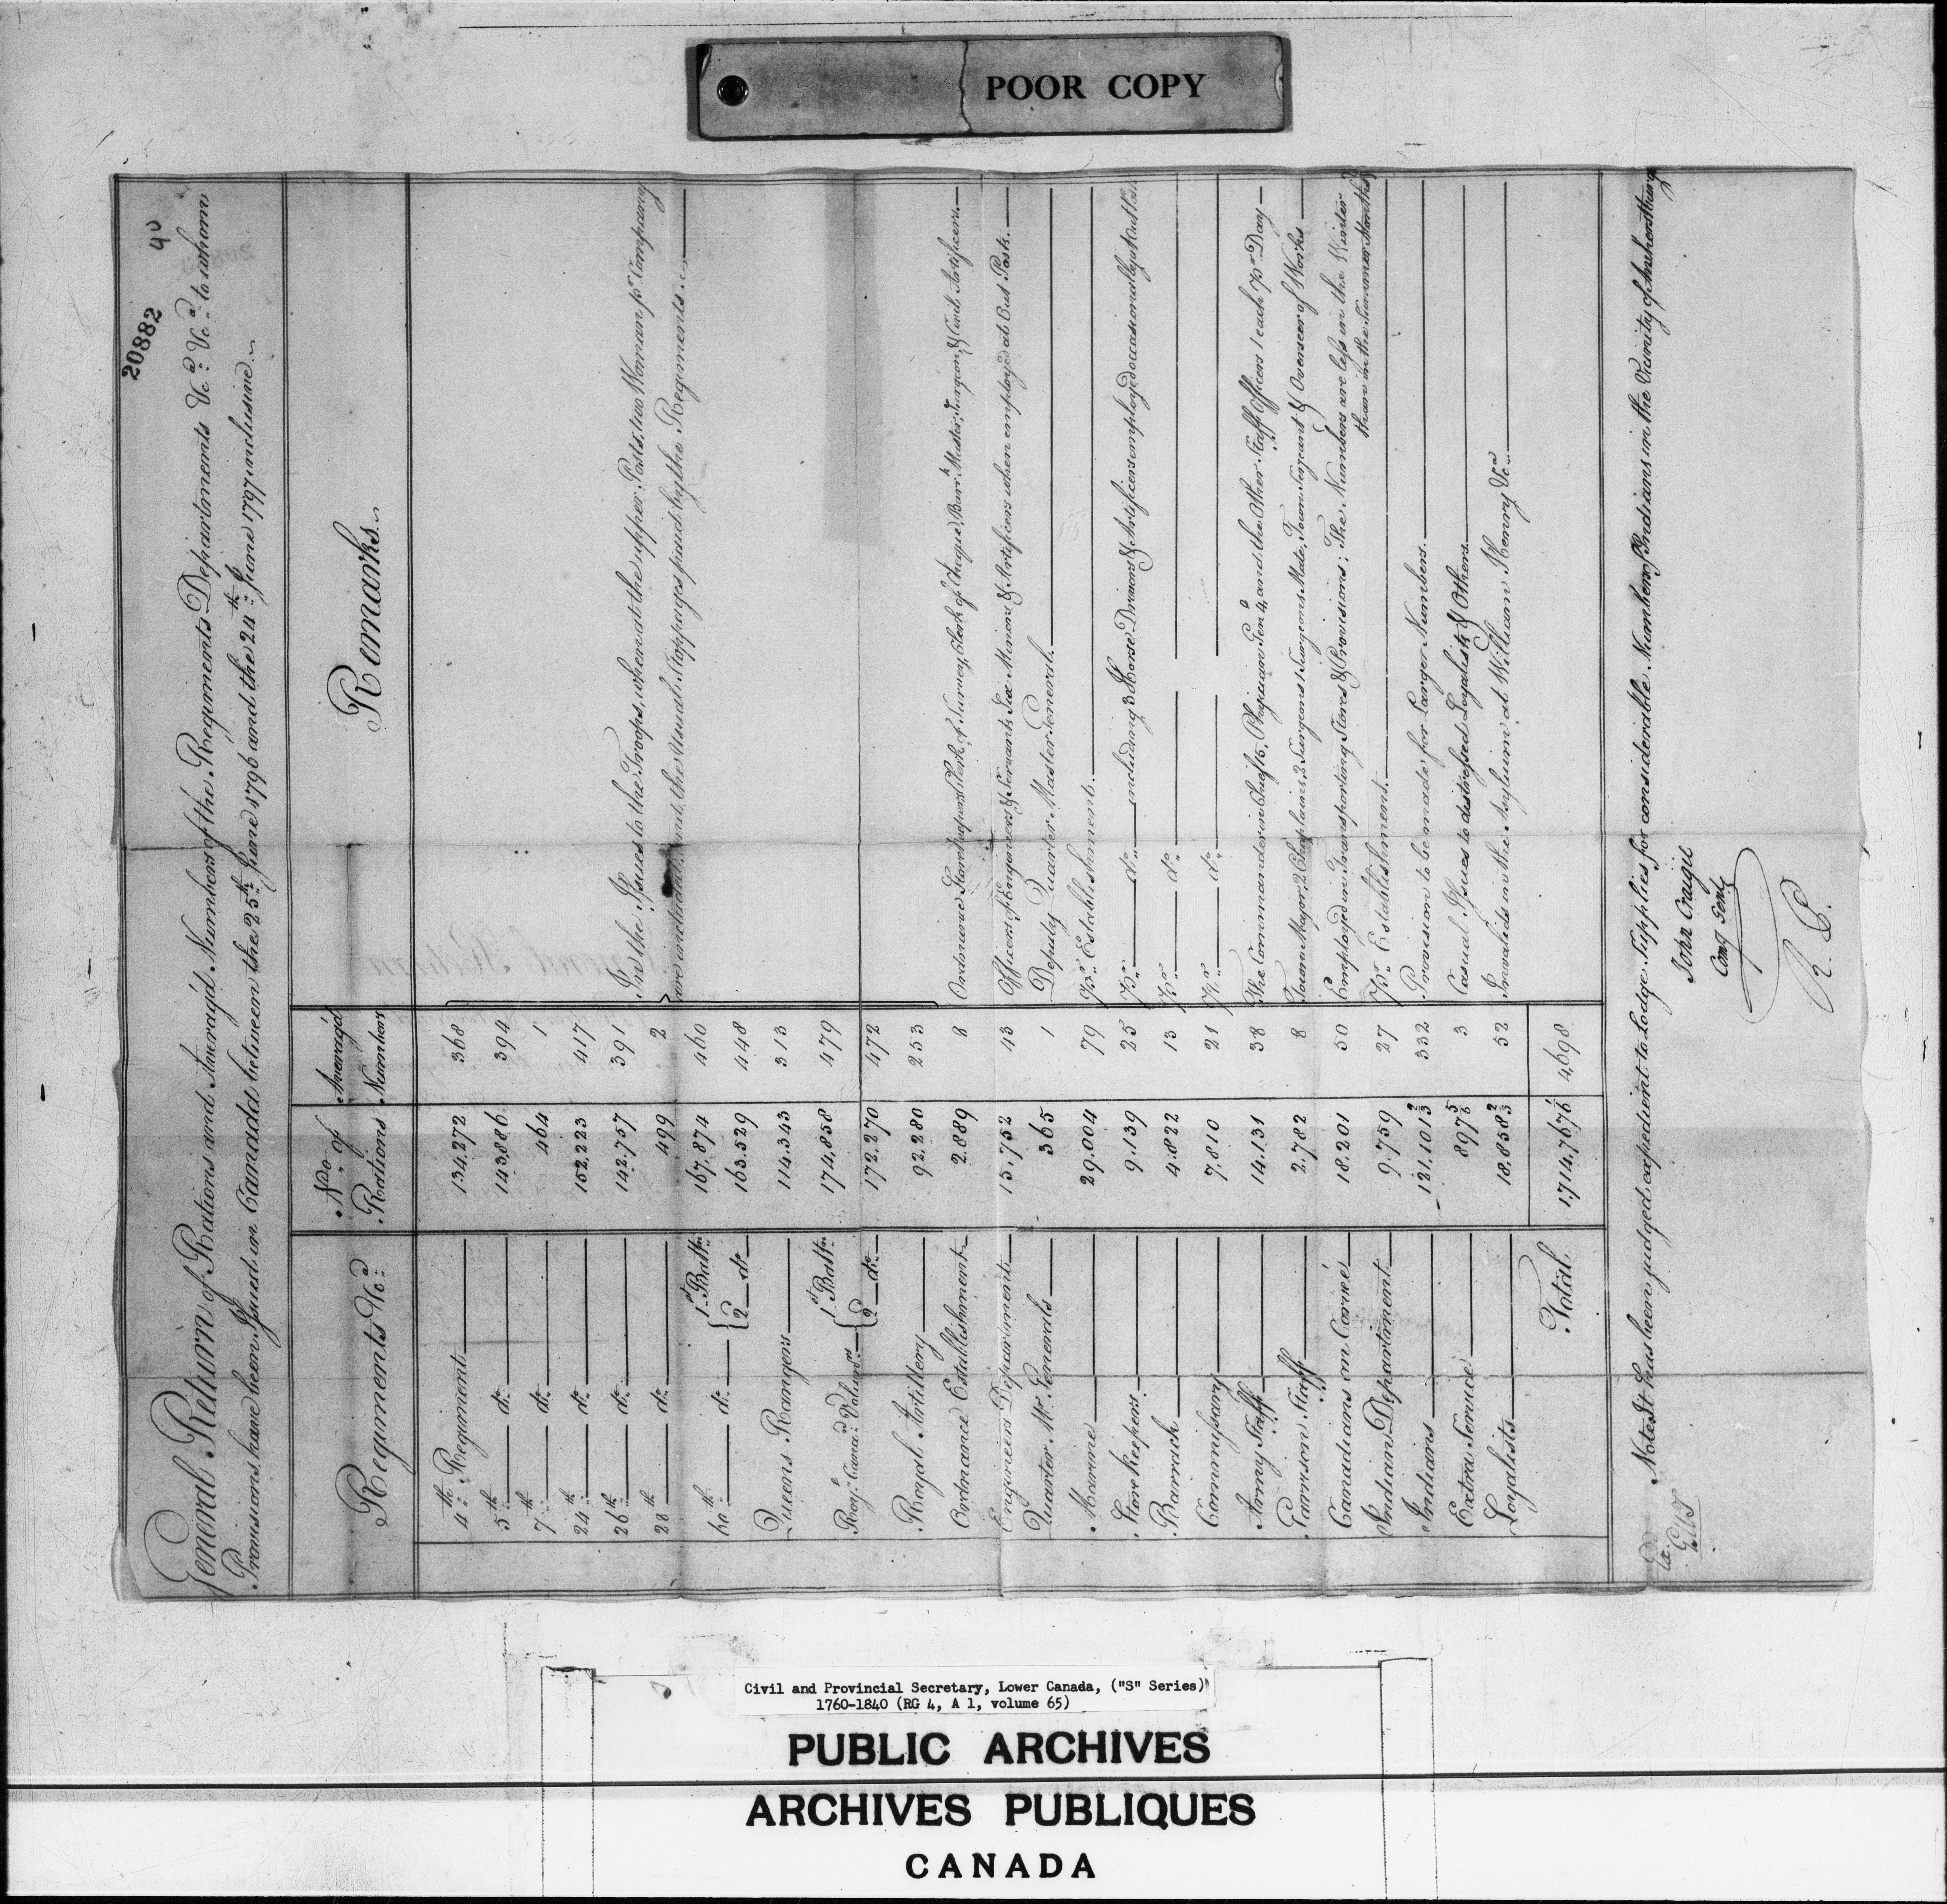 POOR COPY
20882
40
General Return of Rations and Averag'd Numbers of the Regiments Departments &ca. &ca. to whom
Provisions have been Issued in Canada between the 25th June 1796 and the 24th June 1797 inclusive.
Regiments &ca. No. of Rations Averag'd Numbers Remarks
4th Regiment 134,272 368
5th do. 143,886 394
7th do. 464 1
24th do. 152,223 417
26th do. 142,757 391 In the Issues to the Troops, when at the upper Posts, two Woman pr. Company
28th do. 499 2 are included, and the Usual Stoppages paid by the Regiments.
60th do. { 1st Battn. 167,874 460
2d do. 163,529 448
Queens Rangers 114,343 313
Royl. Canad. Volunrs. { 1st Battn. 174,858 479
2d do. 172,270 472
Royal Artillery 92,280 253
Ordnance Establishment 2,889 8 Ordnance Storekeepers Clerk, of Survey, Clerk of Cheque, Barrk. Master, Surgeon, & Civil Artificers.
Engineers Department 15,752 43 Officers of Engineers & Servants Six Miners & Artificers when employed at Out Posts.
Quarter Mr. Generals 365 1 Deputy Quarter Master General.
Marine 29,004 79 Pr. Establishment.
Storekeepers 9,139 25 Pr. do. including 3 Horse Drivers & Artificers employed occasionally at
Barrack 4,822 13 Pr. do.
Commissary 7,810 21 Pr. do.
Army Staff 14,131 38 The Commander in Chief 15, Physician Genl. 4, and the Other Staff Officers 1 each Pr. Day
Garrison Staff 2,782 8 Town Major, 2 Chaplains, 2 Surgeons 1 Surgeons Mate, Town Serjeant & Overseer of Works
Canadians on Corvée 18,201 50 Employed in Transporting Stores & Provisions; The Numbers are less in the Winter
than in the Summer Months
Indian Department 9,759 27 Pr. Establishment.
Indians 121,101 2/3 332 Provision to be made for Larger Numbers.
Extra Service 897 5/6 3 Casual Issues to distressed Loyalists & Others.
Loyalists 18,858 2/3 52 Invalids in the Asylum at William Henry &ca.
Total 1,714,767 1/6 4,698
Note. It has been judged expedient to lodge Supplies for considerable Numbers of Indians in the Vicinity of Amherstburg
Ex.
John Craigie
Comy Genl.
R. P.
Civil and Provincial Secretary, Lower Canada, ("S" Series)
1760-1840 (RG 4, A 1, volume 65)
PUBLIC ARCHIVES
ARCHIVES PUBLIQUES
CANADA